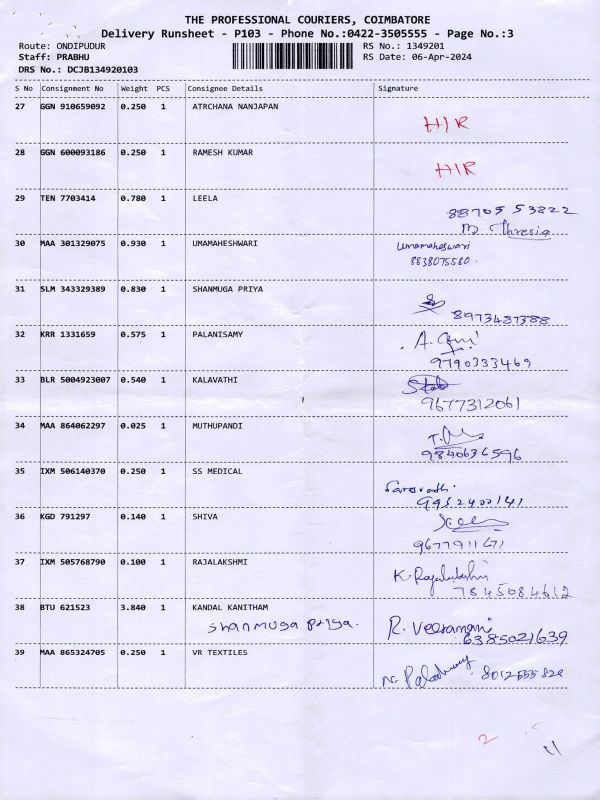 THE PROFESSIONAL COURIERS, COIMBATORE
Delivery Runsheet - P103 - Phone No.:0422-3505555 - Page No.:3
Route: ONDIPUDUR RS No.: 1349201
Staff: PRABHU RS Date: 06-Apr-2024
DRS No.: DCJB134920103
S No Consignment No Weight PCS Consignee Details Signature
27 GGN 910659092 0.250 1 ATRCHANA NANJAPAN
H/R
28 GGN 600093186 0.250 1 RAMESH KUMAR
H/R
29 TEN 7703414 0.780 1 LEELA
88705 53822
M. Thresia
30 MAA 301329075 0.930 1 UMAMAHESHWARI
Umamaheswari
8838075580.
31 SLM 343329389 0.830 1 SHANMUGA PRIYA
8973487388
32 KRR 1331659 0.575 1 PALANISAMY
9790333469
33 BLR 5004923007 0.540 1 KALAVATHI
9677312061
34 MAA 864062297 0.025 1 MUTHUPANDI
9840636596
35 IXM 506140370 0.250 1 SS MEDICAL
9952400141
36 KGD 791297 0.140 1 SHIVA
9677911671
37 IXM 505768790 0.100 1 RAJALAKSHMI
K. Rajalakshmi
7845084612
38 BTU 621523 3.840 1 KANDAL KANITHAM
Shanmuga Priya. R. Veeramani
6385021639
39 MAA 865324705 0.250 1 VR TEXTILES
8012555828
2
11